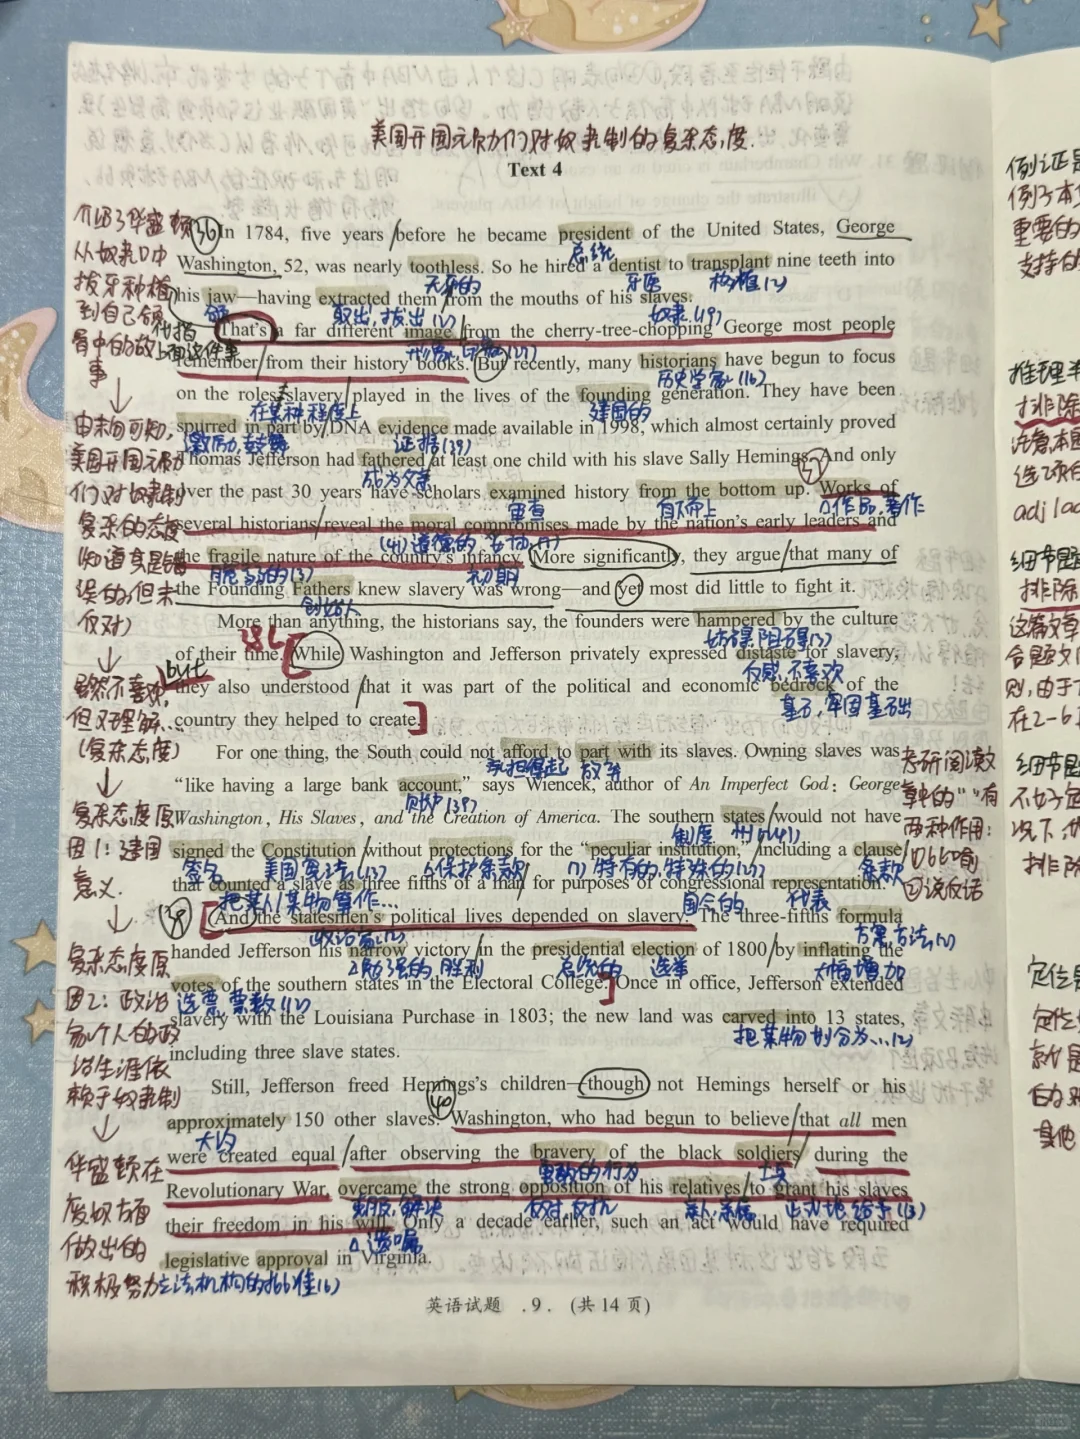 美国开国元勋们对奴隶制的复杂态度.
Text 4
介绍了华盛顿
从奴隶口中
拔牙种植
到自己颌
骨中的故
事
↓
由末句可知,
美国开国元勋
们对奴隶制
复杂的态度
(知道其是错
误的,但未
仅对)
↓
虽然不喜欢,
但又理解...
(复杂态度)
↓
复杂态度原
因1:建国
意义.
↓
复杂态度原
因2:政治
家个人的政
治生涯依
赖于奴隶制
↓
华盛顿在
废奴方面
做出的
积极努力
36 In 1784, five years/before he became president of the United States, George
总统
Washington, 52, was nearly toothless. So he hired a dentist to transplant nine teeth into
无牙的 牙医 移植(2)
his jaw—having extracted them/from the mouths of his slaves.
颌 取出,拔出(2) 奴隶(19)
代指上面这件事
That's a far different image/from the cherry-tree-chopping George most people
remember/from their history books. But recently, many historians have begun to focus
历史学家(16)
on the roles slavery/played in the lives of the founding generation. They have been
在某种程度上 建国的
spurred in part by/DNA evidence made available in 1998, which almost certainly proved
激励,鼓舞 证据(39)
Thomas Jefferson had fathered/at least one child with his slave Sally Hemings. 37 And only
成为父亲
over the past 30 years have scholars examined history from the bottom up. Works of
审查 自下而上 作品,著作
several historians/reveal the moral compromises made by the nation's early leaders and
道德的
the fragile nature of the country's infancy. More significantly, they argue/that many of
脆弱的(3) 初期
the Founding Fathers knew slavery was wrong—and yet most did little to fight it.
创始人
More than anything, the historians say, the founders were hampered by the culture
妨碍,阻碍(3)
of their time. 38 [While Washington and Jefferson privately expressed distaste for slavery,
反感,不喜欢
but
they also understood/that it was part of the political and economic bedrock of the
基石,牢固基础
country they helped to create.]
For one thing, the South could not afford to part with its slaves. Owning slaves was
承担得起 放弃
“like having a large bank account,” says Wiencek, author of An Imperfect God: George
账户(39)
Washington, His Slaves, and the Creation of America. The southern states/would not have
制度
signed the Constitution/without protections for the “peculiar institution,”/including a clause
签名 美国宪法(13) 保护条款 特有的,特殊的 条款
that counted a slave as three fifths of a man/for purposes of congressional representation.
把某人/某物算作... 国会的 代表
39 [And the statesmen's political lives depended on slavery. The three-fifths formula
政治家(2) 方案,方法(2)
handed Jefferson his narrow victory/in the presidential election of 1800/by inflating the
勉强的 胜利 总统的 选举 大幅增加
votes of the southern states in the Electoral College.] Once in office, Jefferson extended
选票,票数(12)
slavery with the Louisiana Purchase in 1803; the new land was carved into 13 states,
把某物划分为...(2)
including three slave states.
Still, Jefferson freed Hemings's children—though not Hemings herself or his
approximately 150 other slaves. 40 Washington, who had begun to believe/that all men
大约
were created equal/after observing the bravery of the black soldiers/during the
勇敢的行为 士兵
Revolutionary War, overcame the strong opposition of his relatives/to grant his slaves
克服,解决 反对,反抗 亲人,亲属
their freedom in his will. Only a decade earlier, such an act would have required
遗嘱
legislative approval in Virginia.
立法机构的批准(6)
英语试题 .9. (共14页)
考研阅读文
章中的“”有
两种作用:
②说反话
例证是
例子本
重要的
支持的
推理
排除
选项
adj lad
细节题
排除
这篇文章
合题文
则,由于
在2-6
细节题
不好定
况下,
排除
定位是
定位
就是
的
其他